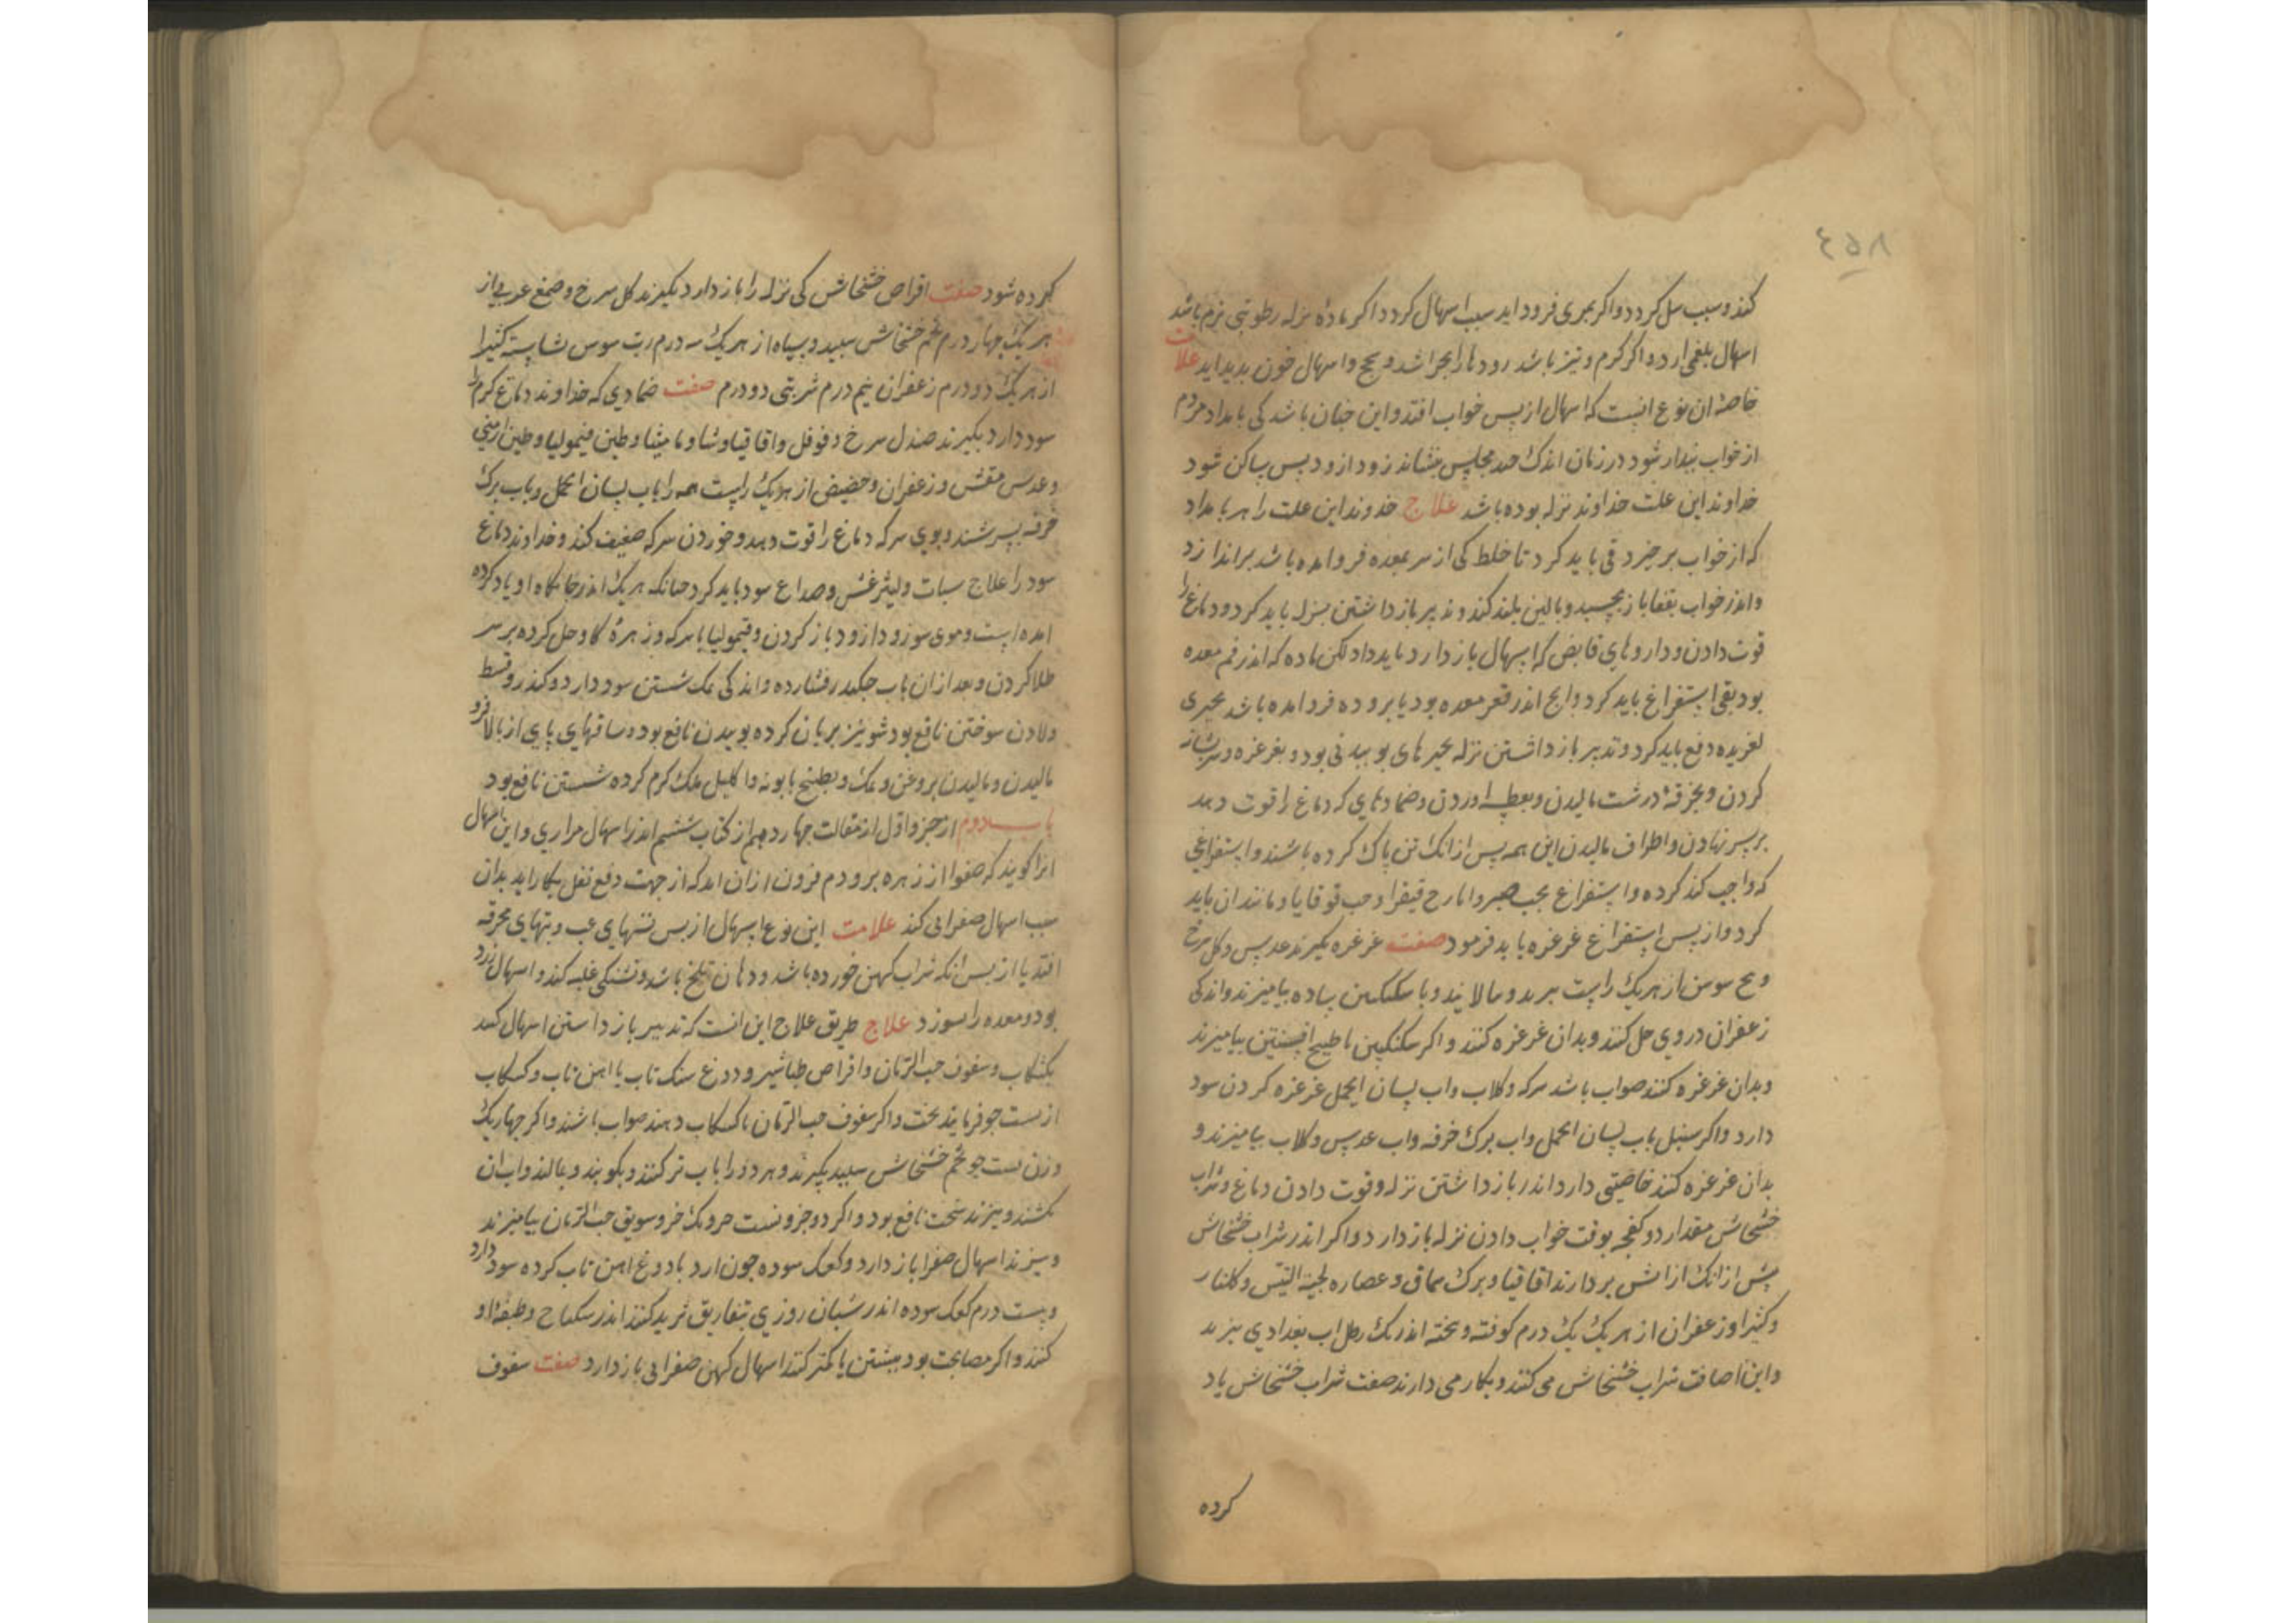 ٤٥٨
کند و سبب سل کردد و اکر بمری فرود اید سبب اسهال کردد اکر مادهٔ نزله رطوبتی نرم باشد
اسهال بلغمی ارد و اکر کرم و تیز باشد رودها را بخراشد و سحج و اسهال خون بدید اید علامت
خاصهٔ ان نوع انست که اسهال از پس خواب افتد و این جنان باشد کی بامداد مردم
از خواب بیدار شود در زمان اندک چند مجلس بنشاند زود از زود پس ساکن شود
خداوند این علت خداوند نزله بوده باشد علاج خداوند این علت را هر بامداد
که از خواب برخیزد قی باید کرد تا خلط کی از سر بمعده فرو امده باشد براندازد
و اندر خواب بقفا باز نخسبد و بالین بلند کند و تدبیر باز داشتن نزله باید کرد و دماغ را
قوت دادن و داروهای قابض که اسهال باز دارد نباید داد لکن ماده که اندر فم معده
بود بقی استفراغ باید کرد و انج اندر قعر معده بود یا بروده فرو امده باشد بجیزی
لغزیده دفع باید کرد و تدبیر باز داشتن نزله بجیزهای بوییدنی بود و بغرغره و سر تیشانه
کردن و بخرقهٔ درشت مالیدن و بعطسه اوردن و ضمادهای که دماغ را قوت دهد
بر سر نهادن و اطراف مالیدن این همه پس از انک تن پاک کرده باشند و استفراغی
که واجب کند کرده و استفراغ بحب صبر و ایارج فیقرا و حب قوقایا و مانند ان باید
کرد و از پس استفراغ غرغره باید فرمود صفت غرغره بکیرند عدس و کل سرخ
و بیخ سوسن از هر یک راست بپزند و بپالایند و با سکنکبین ساده بیامیزند و اندکی
زعفران در وی حل کنند و بدان غرغره کنند و اکر سکنکبین با طبیخ افسنتین بیامیزند
و بدان غرغره کنند صواب باشد سرکه و کلاب و اب لسان الحمل غرغره کردن سود
دارد و اکر سنبل باب لسان الحمل و اب برک خرفه و اب عدس و کلاب بیامیزند و
بدان غرغره کنند خاصیتی دارد اندر باز داشتن نزله و قوت دادن دماغ و شراب
خشخاش مقدار دو کفجه بوقت خواب دادن نزله باز دارد و اکر اندر شراب خشخاش
پیش از انک از اتش بردارند اقاقیا و برک سماق و عصاره لحیة التیس و کلنار
و کثیرا و زعفران از هر یک یک درم کوفته و بیخته اندر یک رطل اب بغدادی بپزند
و این اضافت شراب خشخاش می کنند و بکار می دارند صفت شراب خشخاش یاد
کرده
کرده شود صفت اقراص خشخاش کی نزله را باز دارد بکیرند کل سرخ و صمغ عربی از
هر یک جهار درم تخم خشخاش سبید و سیاه از هر یک سه درم رب سوس نشاسته کثیرا
از هر یک دو درم زعفران نیم درم شربتی دو درم صفت ضمادی که خداوند دماغ کرم را
سود دارد بکیرند صندل سرخ و فوفل و اقاقیا و شاف مامیثا و طین قیمولیا و طین ارمنی
و عدس مقشر و زعفران و حضیض از هر یک راست همه را باب لسان الحمل و باب برک
خرفه بسرشند و بوی سرکه دماغ را قوت دهد و خوردن سرکه ضعیف کند و خداوند دماغ
سود را علاج سبات و لیثرغس و صداع سود باید کرد جنانکه هر یک اندر جایکاه او یاد کرده
امده است و موی سر زود از زود باز کردن و قیمولیا با سرکه و زهرهٔ کاو حل کرده بر سر
طلا کردن و بعد از ان باب جکندر فشارده و اندکی نمک شستن سود دارد و کندر و قسط
و لادن سوختن نافع بود شونیز بریان کرده بوییدن نافع بود و ساقهای پای از بالا فرو
مالیدن و مالیدن بروغن و نمک و بطبیخ بابونه و اکلیل ملک کرم کرده شستن نافع بود
باب دوم از جزو اول از مقالت جهاردهم از کتاب ششم اندر اسهال مراری و این اسهال
انرا کویند که صفرا از زهره برودم فزون از ان اید که از جهت دفع ثفل بکار اید بدان
سبب اسهال صفرایی کند علامت این نوع اسهال از بس تبهای غب و تبهای محرقه
افتد یا از بس انکه شراب کهن خورده باشد و دهان تلخ باشد و تشنکی غلبه کند و اسهال زرد
بود و معده را بسوزد علاج طریق علاج این انست که تدبیر باز داشتن اسهال کنند
بکشکاب و سفوف حب الرمان و اقراص طباشیر و دوغ سنک تاب یا اهن تاب و کشکاب
از بست جو فرمایند بخت و اکر سفوف حب الرمان با کشکاب دهند صواب باشد و اکر جهار یک
وزن بست جو تخم خشخاش سبید بکیرند و هر دو را باب تر کنند و بکوبند و بمالند و اب ان
بکشند و بپزند سخت نافع بود و اکر دو جزو بست جو و یک جزو سویق حب الرمان بیامیزند
و بپزند اسهال صفرا باز دارد و کعک سوده جون ارد با دوغ اهن تاب کرده سود دارد
و بیست درم کعک سوده اندر شبان روزی بتفاریق ثرید کنند اندر سکباج و طبقه او
کنند و اکر مصابحت بود بیشتر یا کمتر کنند اسهال کهن صفرایی باز دارد صفت سفوف